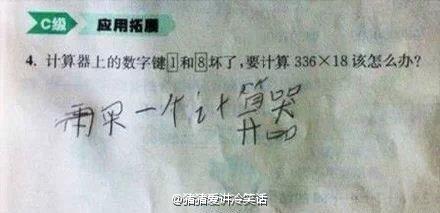 C级 应用拓展
4. 计算器上的数字键1和8坏了,要计算 336×18 该怎么办?
再买一个计算器
@猪猪爱讲冷笑话